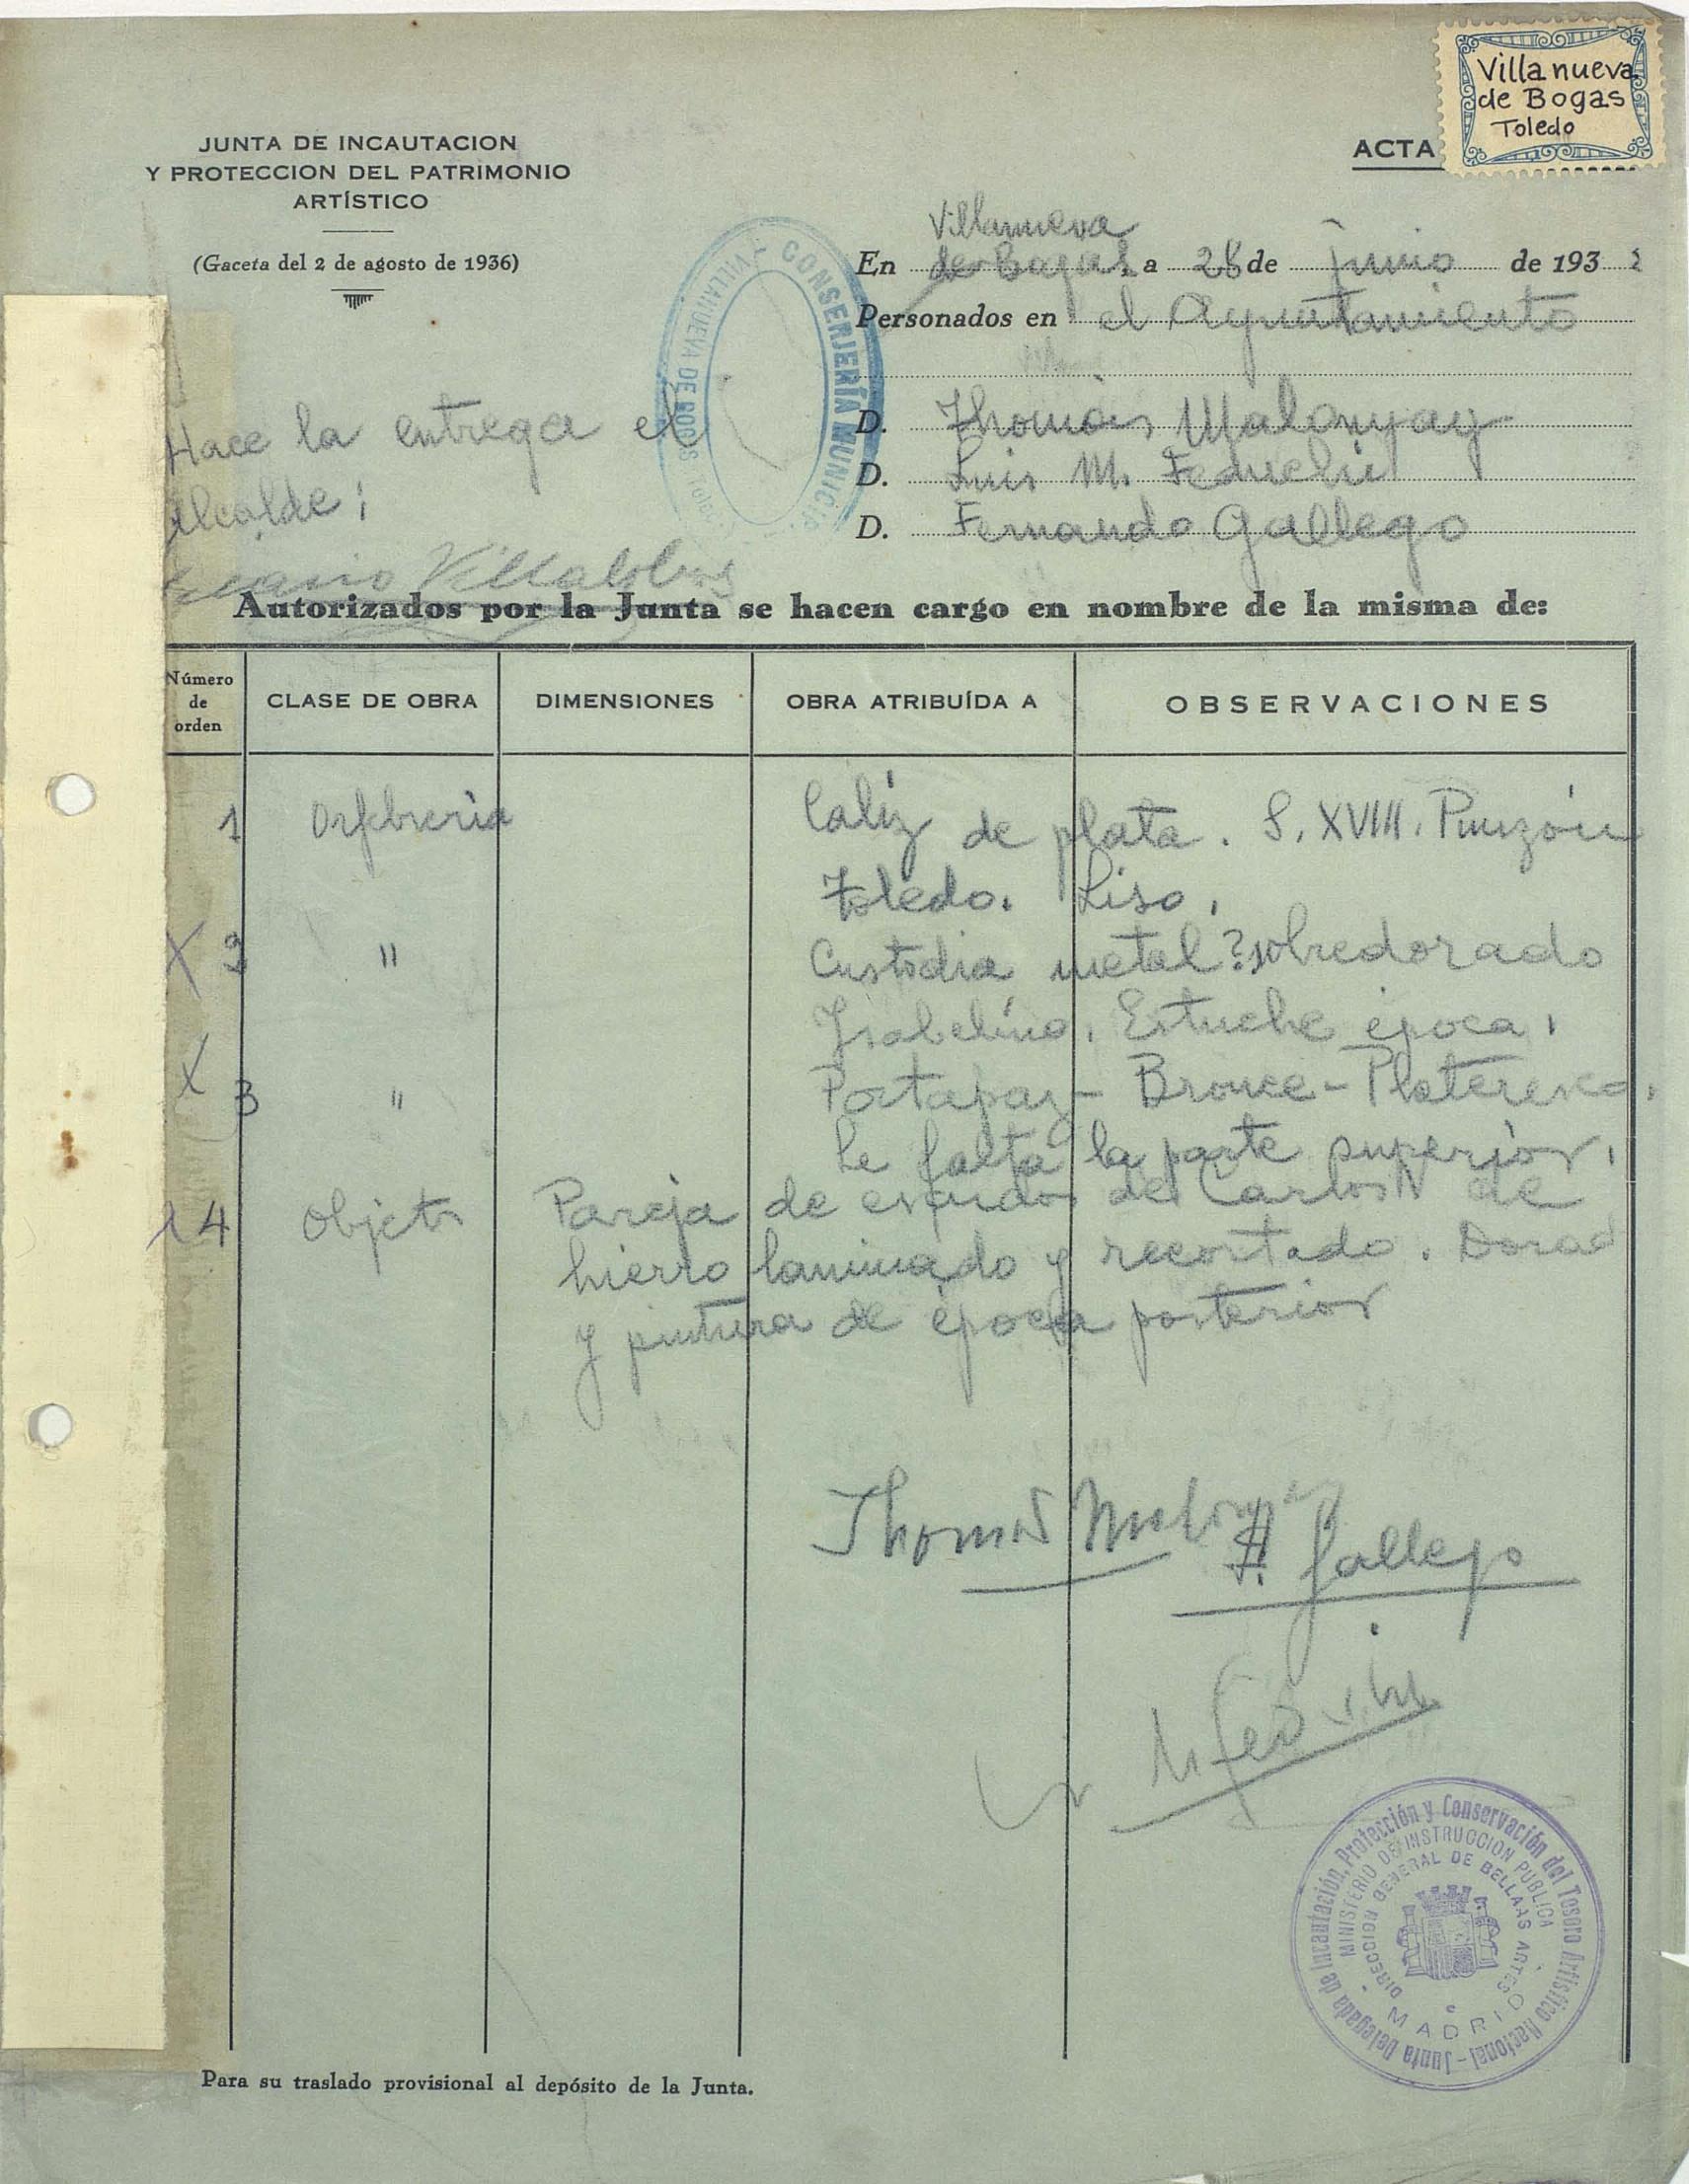 Villanueva
de Bogas
Toledo
JUNTA DE INCAUTACION
Y PROTECCION DEL PATRIMONIO
ARTÍSTICO
(Gaceta del 2 de agosto de 1936)
ACTA
Villanueva
En de Bogas a 28 de junio de 193
Personados en el Ayuntamiento
D. Thomas Malonyay
D. Luis M. Feduchi
D. Fernando Gallego
CONSERJERÍA MUNICIPAL
VILLANUEVA DE BOGAS Toledo
Hace la entrega el
Alcalde;
Villalobos
Autorizados por la Junta se hacen cargo en nombre de la misma de:
Número de orden
CLASE DE OBRA
DIMENSIONES
OBRA ATRIBUÍDA A
OBSERVACIONES
1 Orfebreria Caliz de plata. S. XVIII. Punzón
Toledo. Liso.
X 2 " Custodia metal? sobredorado
Isabelino. Estuche época.
X 3 " Portapaz - Bronce - Plateresco.
Le falta la parte superior.
4 Objeto Pareja de escudos de Carlos V de
hierro laminado y recortado. Dorad
y pintura de época posterior
Thomas
F. Gallego
Junta Delegada de Incautación, Protección y Conservación del Tesoro Artístico Nacional
MINISTERIO DE INSTRUCCION PUBLICA
DIRECCION GENERAL DE BELLAS ARTES
MADRID
Para su traslado provisional al depósito de la Junta.